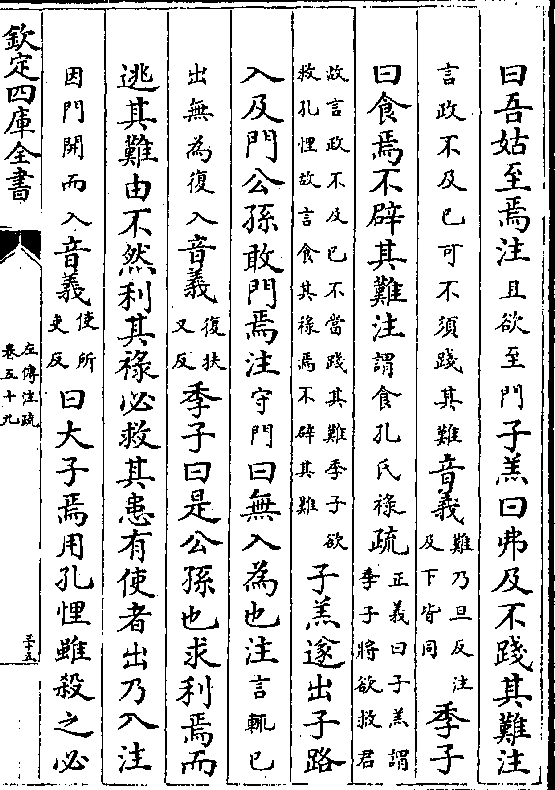 曰吾姑至焉注且欲至門子羔曰弗及不踐其難注
言政不及已可不須踐其難音義難乃旦反注及下皆同季子
曰食焉不辟其難注謂食孔氏祿疏正義曰子羔謂季子將欲救君
故言政不及已不當踐其難季子欲救孔悝故言食其祿焉不辟其難子羔遂出子路
入及門公孫敢門焉注守門曰無入為也注言輒已
出無為復入音義復扶又反季子曰是公孫也求利焉而
逃其難由不然利其祿必救其患有使者出乃入注
因門開而入音義使所吏反曰大子焉用孔悝雖殺之必
欽定四庫全書
左傳注疏
卷五十九
三十五